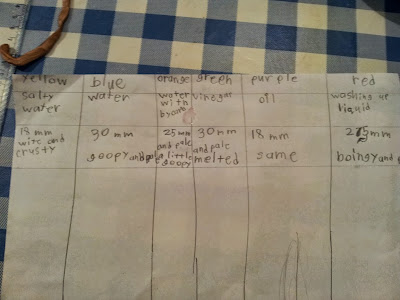 yellow
blue
orange
green
purple
red
salty
water
water
water
with
vinegar
oil
washing up
liquid
18 mm
wite and
crusty
30 mm
goopy and
25 mm
and pale
a little
goopy
30 mm
and pale
melted
18 mm
same
mm
boingy and